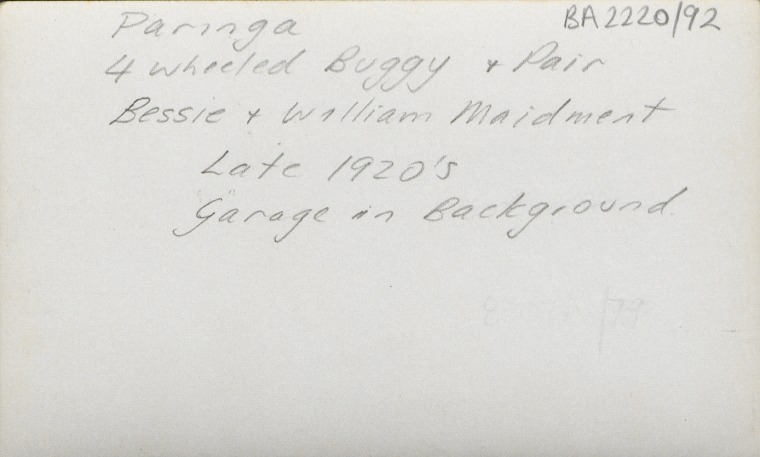 BA2220/92
Paringa
4 wheeled Buggy + Pair
Bessie + William Maidment
Late 1920's
Garage in Background.